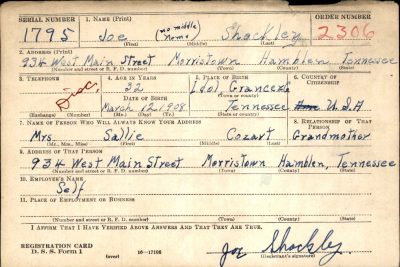 SERIAL NUMBER 1. NAME (Print) ORDER NUMBER
1795 Joe (no middle name) Shockley 2306
(First) (Middle) (Last)
2. ADDRESS (Print)
934 West Main Street Morristown Hamblen Tennessee
(Number and street or R. F. D. number) (Town) (County) (State)
3. TELEPHONE 4. AGE IN YEARS 5. PLACE OF BIRTH 6. COUNTRY OF CITIZENSHIP
32 Idol, Grancer
DATE OF BIRTH (Town) (County)
March 12, 1908 Tennessee U.S.A
(Exchange) (Number) (Mo.) (Day) (Yr.) (State or country)
7. NAME OF PERSON WHO WILL ALWAYS KNOW YOUR ADDRESS 8. RELATIONSHIP OF THAT PERSON
Mrs. Sallie Cozart Grandmother
(Mr., Mrs., Miss) (First) (Middle) (Last)
9. ADDRESS OF THAT PERSON
934 West Main Street Morristown Hamblen, Tennessee
(Number and street or R. F. D. number) (Town) (County) (State)
10. EMPLOYER'S NAME
Self
11. PLACE OF EMPLOYMENT OR BUSINESS
(Number and street or R. F. D. number) (Town) (County) (State)
I AFFIRM THAT I HAVE VERIFIED ABOVE ANSWERS AND THAT THEY ARE TRUE.
REGISTRATION CARD
D. S. S. Form 1 (over) 16-17105 Joe Shockley
(Registrant's signature)